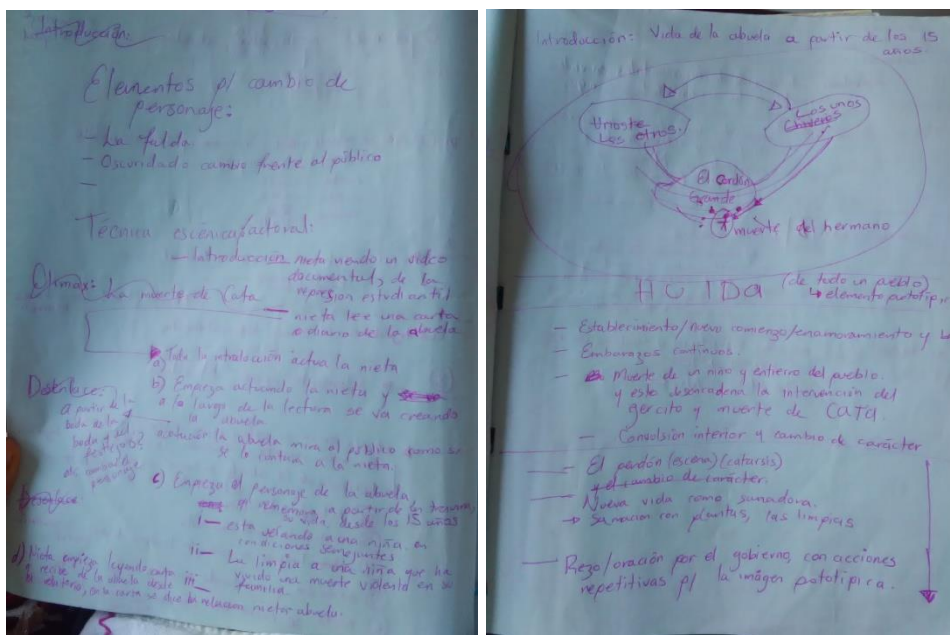 Introducción:
Elementos p/ cambio de
personaje:
- La falda
- Oscuridad o cambio frente al público
-
Técnica escénica/actoral:
- Introducción nieta viendo un video
documental, de la
represion estudiantil
Climax: La muerte de Cata
nieta lee una carta
o diario de la abuela
a) Toda la actua la nieta
Desenlace:
b) Empeza actuando la nieta y
a lo largo de la lectura se va creando
la abuela
a partir de la
la abuela mira al público como se
se lo contara a la nieta.
c) Empeza el personaje de la abuela
q' rememora a partir de
su vida, desde los 15 años
i— esta velando a una niña en
condiciones semejantes
ii— La limpia a una niña que ha
vivido una muerte violenta en su
familia.
d) Nieta empieza leyendo carta iii—
q' recibe de la abuela desde
la carta se da la relacion nieta abuela.
Introducción: Vida de la abuela a partir de los 15
años.
Los otros.
Los unos
El
Grande
muerte del hermano
HUIDA (de todo un pueblo)
↳ elemento
- Establecimiento/nuevo comienzo/enamoramiento y
- Embarazos continuos.
- Muerte de un niño y entierro del pueblo.
y esto desencadena la intervención del
ejercito y muerte de CATA.
- Convulsión interior y cambio de carácter
— El perdón (escena) (catarsis)
y el cambio de carácter.
— Nueva vida como sanadora.
→ Sanacion con plantas, las limpias
— Rezo/oración por el gobierno, con acciones
repetitivas p/ la imágen pototípica.